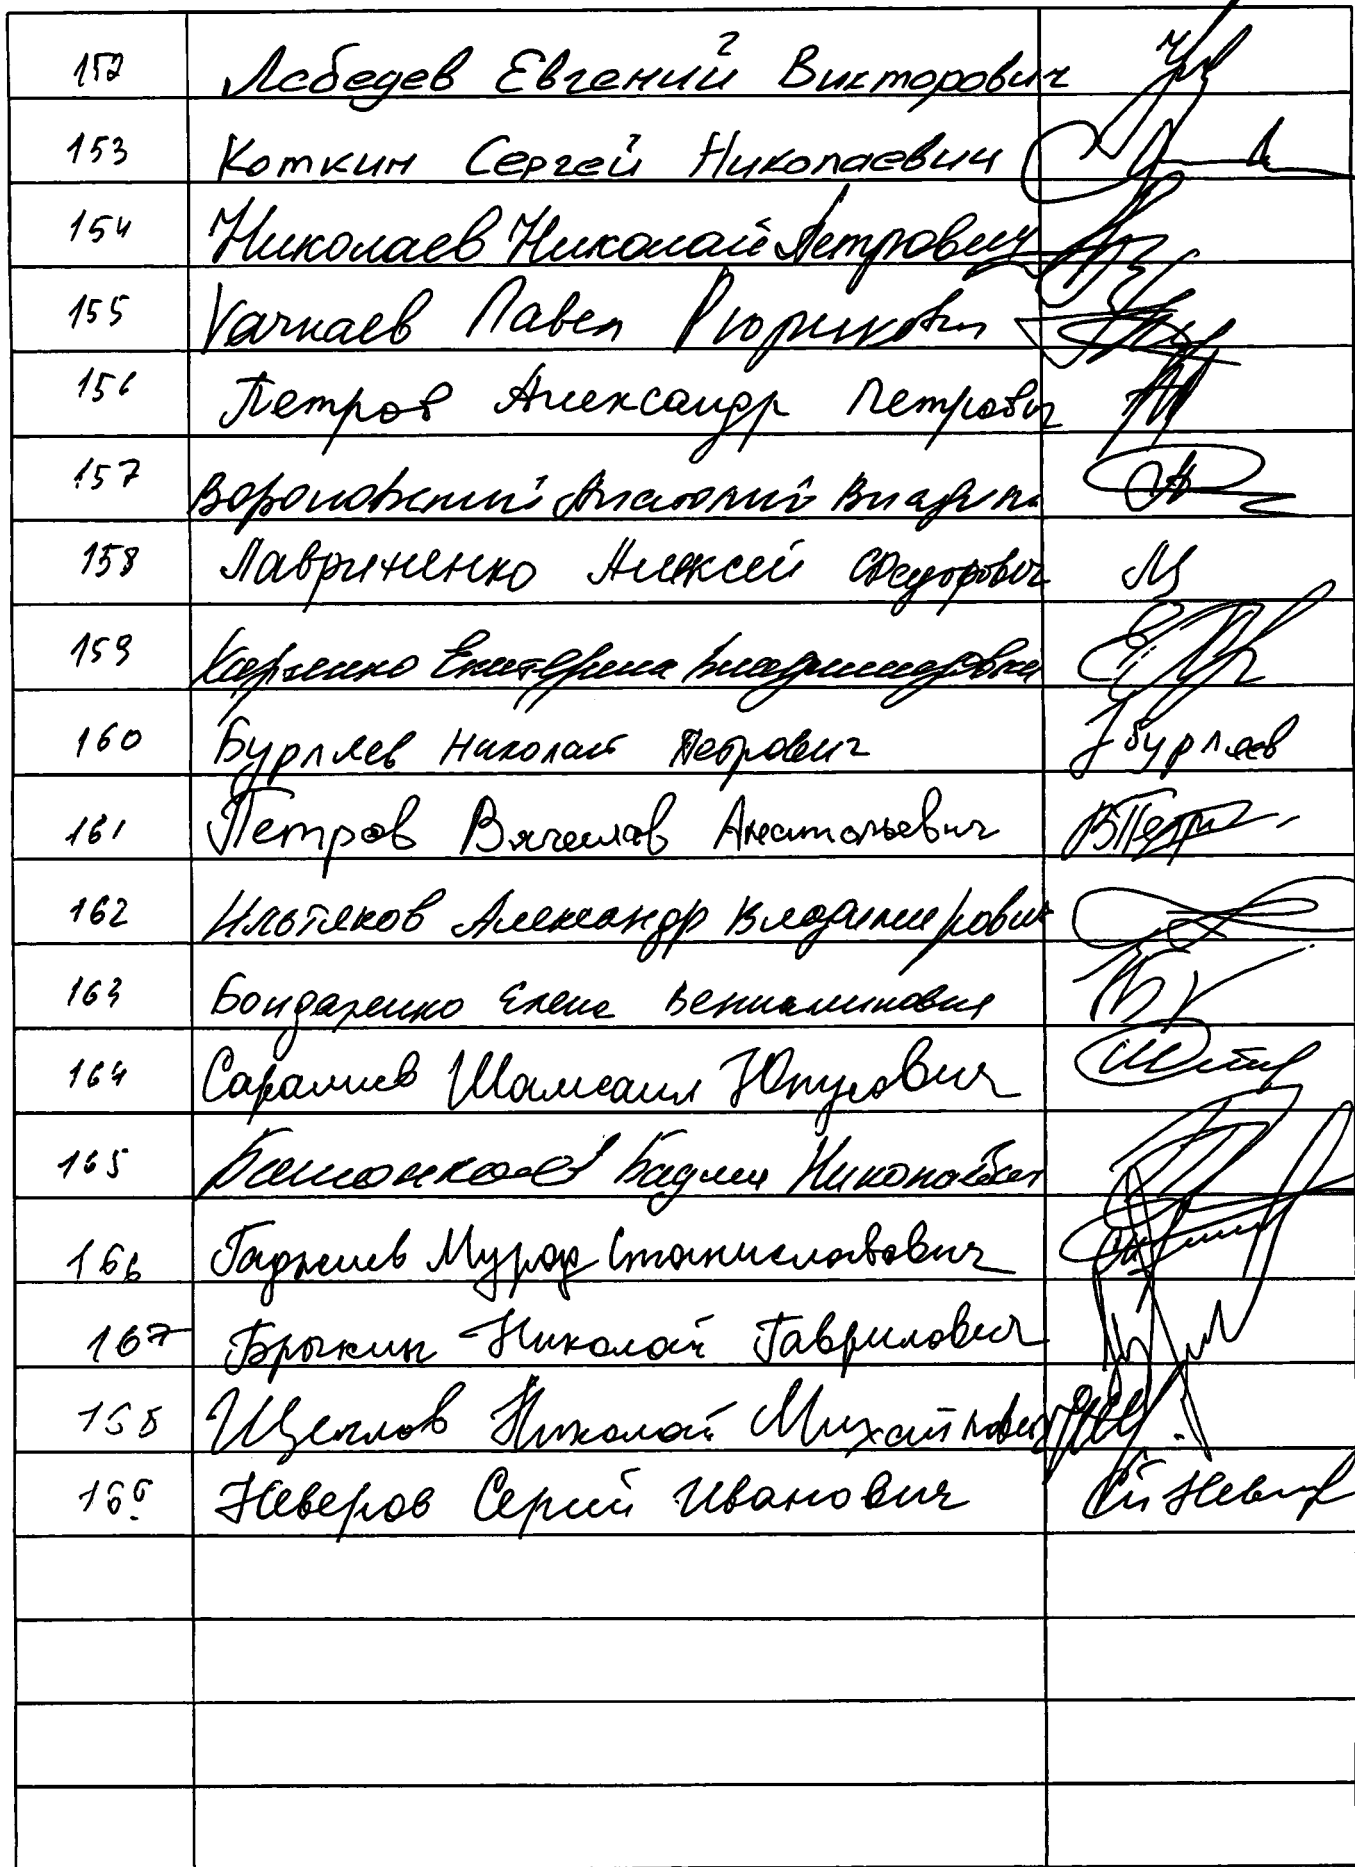 152 Лебедев Евгений Викторович
153 Коткин Сергей Николаевич
154 Николаев Николай Петрович
155 Качкаев Павел Рюрикович
156 Петров Александр Петрович
157 Вороновский Анатолий Владим
158 Лавриненко Алексей Федорович
159 Харченко Екатерина Владимировна
160 Бурляев Николай Петрович Бурляев
161 Петров Вячеслав Анатольевич ВПетр
162 Ильтяков Александр Владимирович
163 Бондаренко Елена Вениаминовна
164 Саралиев Шамсаил Юнусович
165 Башанкаев Бадма Николаевич
166 Гаджиев Мурад Станиславович
167 Брыкин Николай Гаврилович
168 Щеглов Николай Михайлович
169 Неверов Сергей Иванович